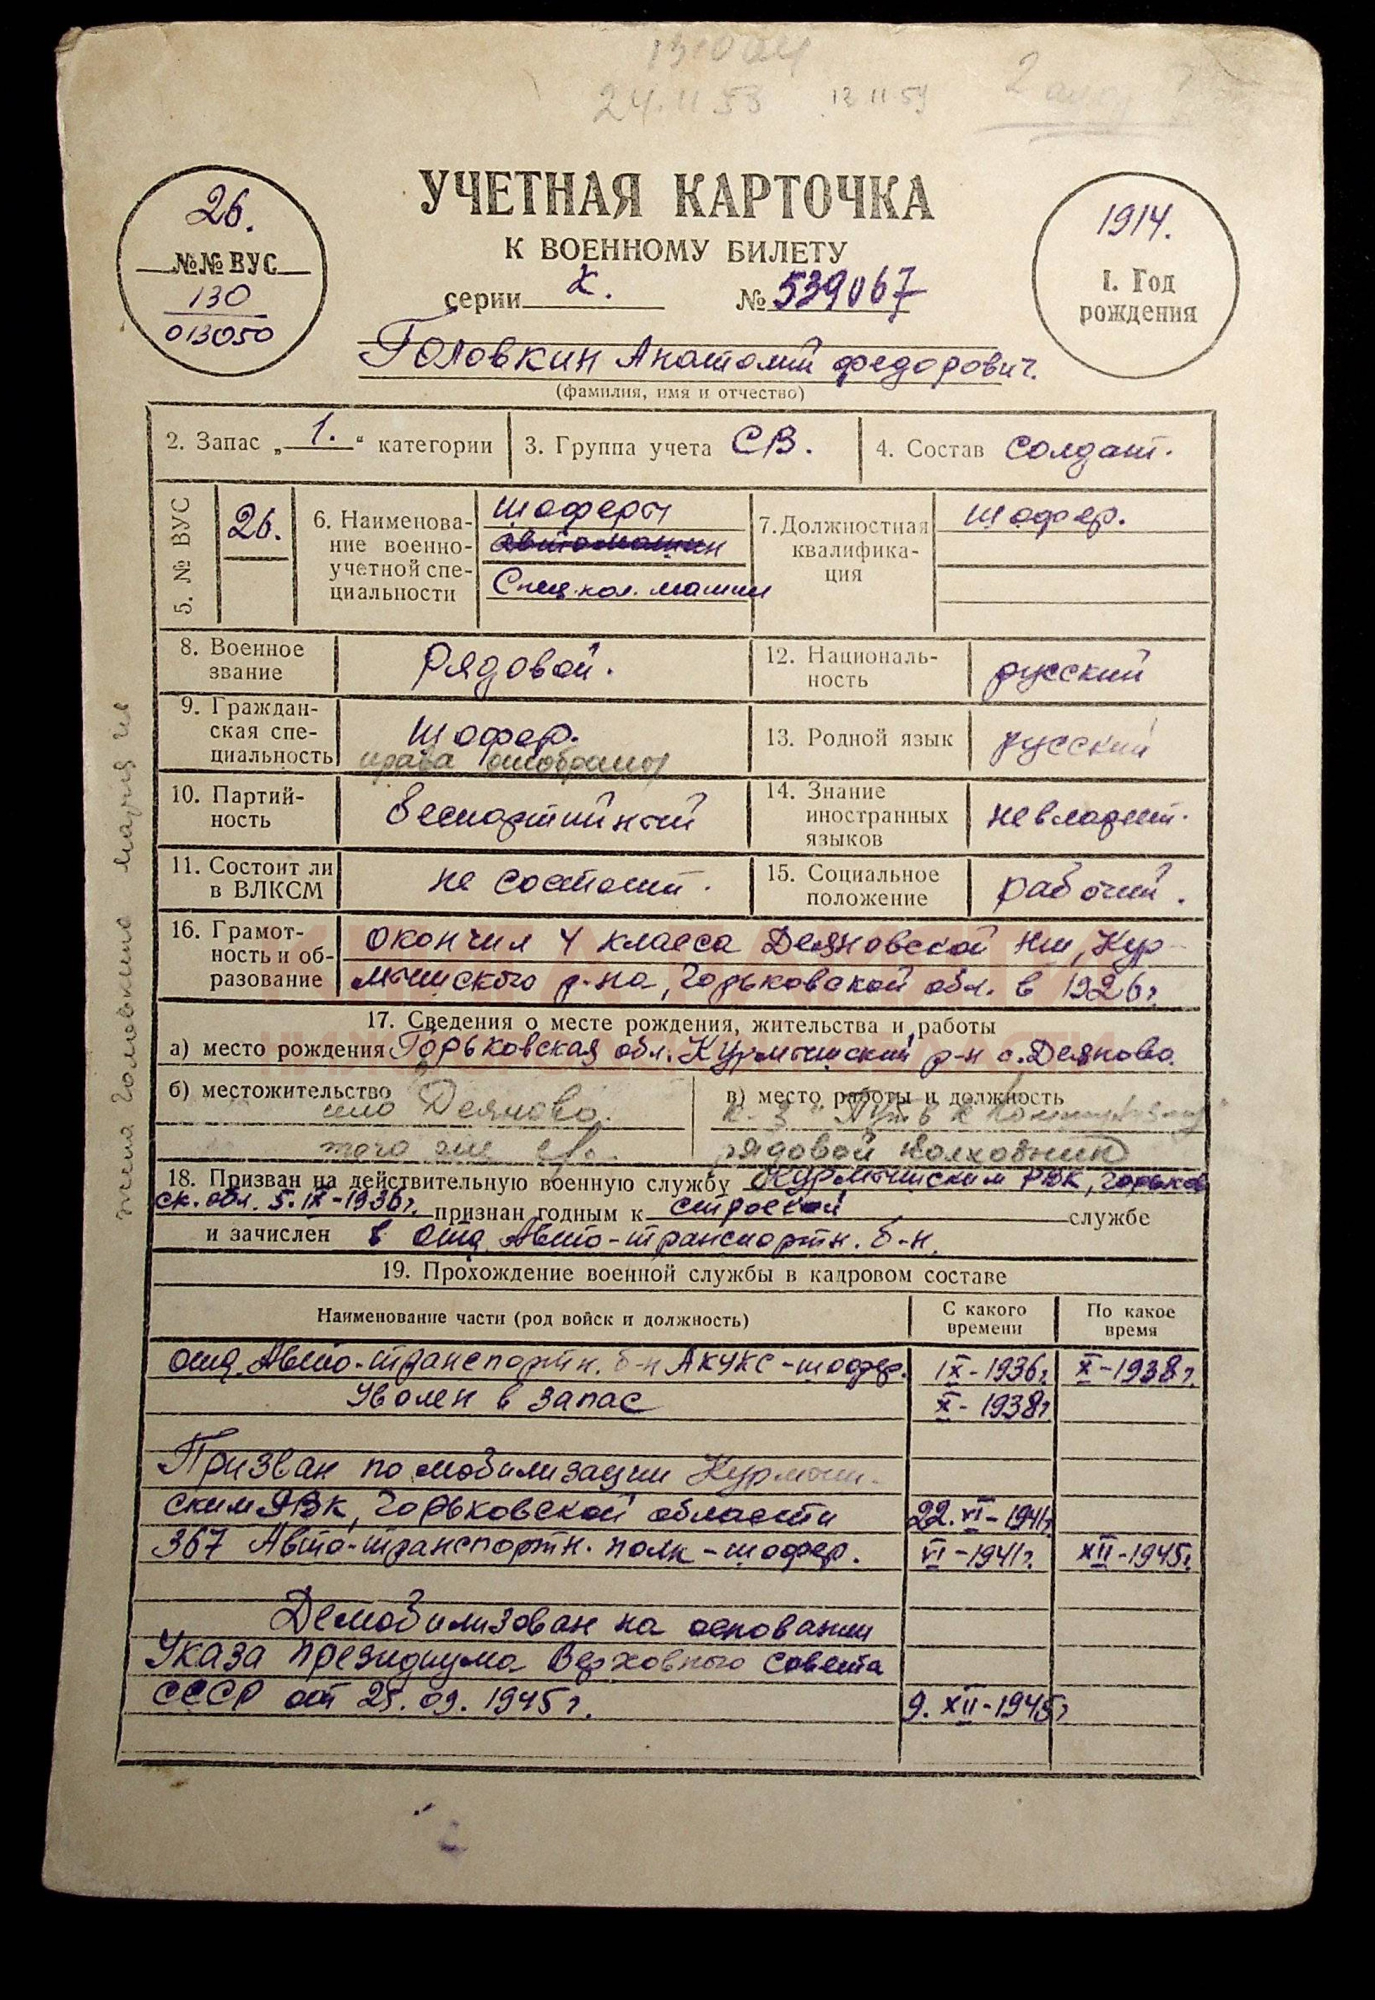 24.11.53 12 11 59
26.
№№ ВУС
130
013050
УЧЕТНАЯ КАРТОЧКА
К ВОЕННОМУ БИЛЕТУ
серии X. № 539067
1914.
1. Год
рождения
Головкин Анатолий Федорович.
(фамилия, имя и отчество)
2. Запас „ 1. “ категории
3. Группа учета СВ.
4. Состав солдат.
5. № ВУС
26.
6. Наименова-
ние военно-
учетной спе-
циальности
шоферы
автомашин
Спец. кол. машин
7. Должностная
квалифика-
ция
шофер.
8. Военное
звание
Рядовой.
12. Националь-
ность
русский
9. Граждан-
ская спе-
циальность
шофер.
права отобраны
13. Родной язык
русский
10. Партий-
ность
беспартийный
14. Знание
иностранных
языков
не владеет.
11. Состоит ли
в ВЛКСМ
не состоит.
15. Социальное
положение
рабочий.
16. Грамот-
ность и об-
разование
окончил 4 класса Деяновской нш, Кур-
мышского р-на, Горьковской обл. в 1926г.
17. Сведения о месте рождения, жительства и работы
а) место рождения Горьковская обл. Курмышский р-н с. Деяново.
б) местожительство
село Деяново.
того же
в) место работы и должность
к-з "Путь к Коммунизму"
рядовой колхозник
18. Призван на действительную военную службу Курмышским РВК, Горьков
ск. обл. 5.IX-1936г. признан годным к строевой службе
и зачислен в отд. Авто-транспортн. б-н.
19. Прохождение военной службы в кадровом составе
Наименование части (род войск и должность)
С какого
времени
По какое
время
отд. Авто-транспортн. б-н АКУКС-шофер. IX-1936г. X-1938г.
Уволен в запас X-1938г
Призван по мобилизации Курмыш-
ским РВК, Горьковской области 22.VI-1941г.
367 Авто-транспортн. полк-шофер. VI-1941г. XII-1945г.
Демобилизован на основании
Указа президиума Верховного Совета
СССР от 25.09.1945г. 9.XII-1945г
жена Головкина Мария